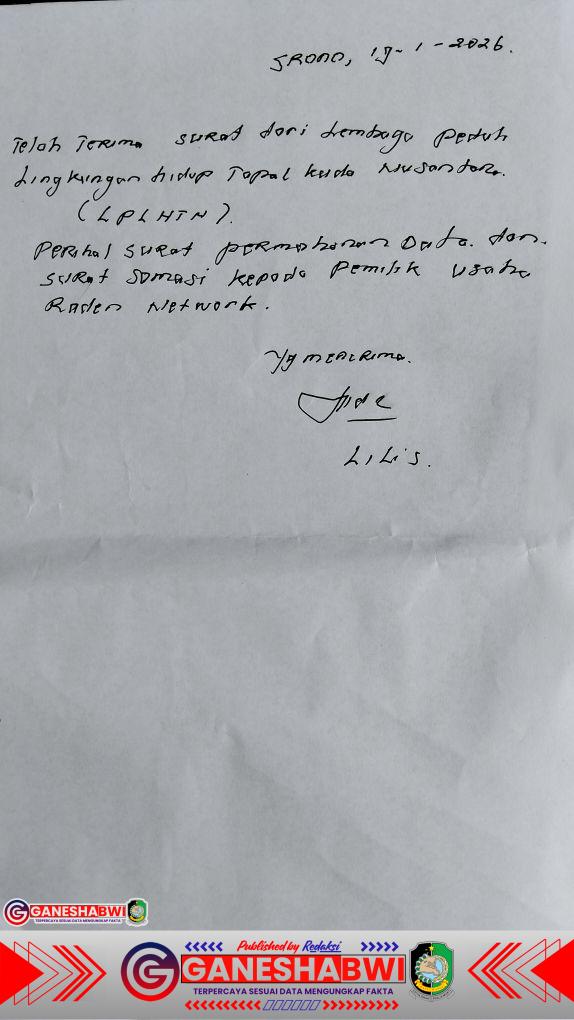 SRONO, 19-1-2026.
Telah Terima surat dari Lembaga Peduli
Lingkungan hidup Tapal kuda Nusantara.
(LPLHTN).
Perihal surat permohonan Data. dan.
surat somasi kepada Pemilik usaha
Raden Network.
Yg menerima.
LiLis.
GANESHABWI
TERPERCAYA SESUAI DATA MENGUNGKAP FAKTA
Published by Redaksi
GANESHABWI
TERPERCAYA SESUAI DATA MENGUNGKAP FAKTA